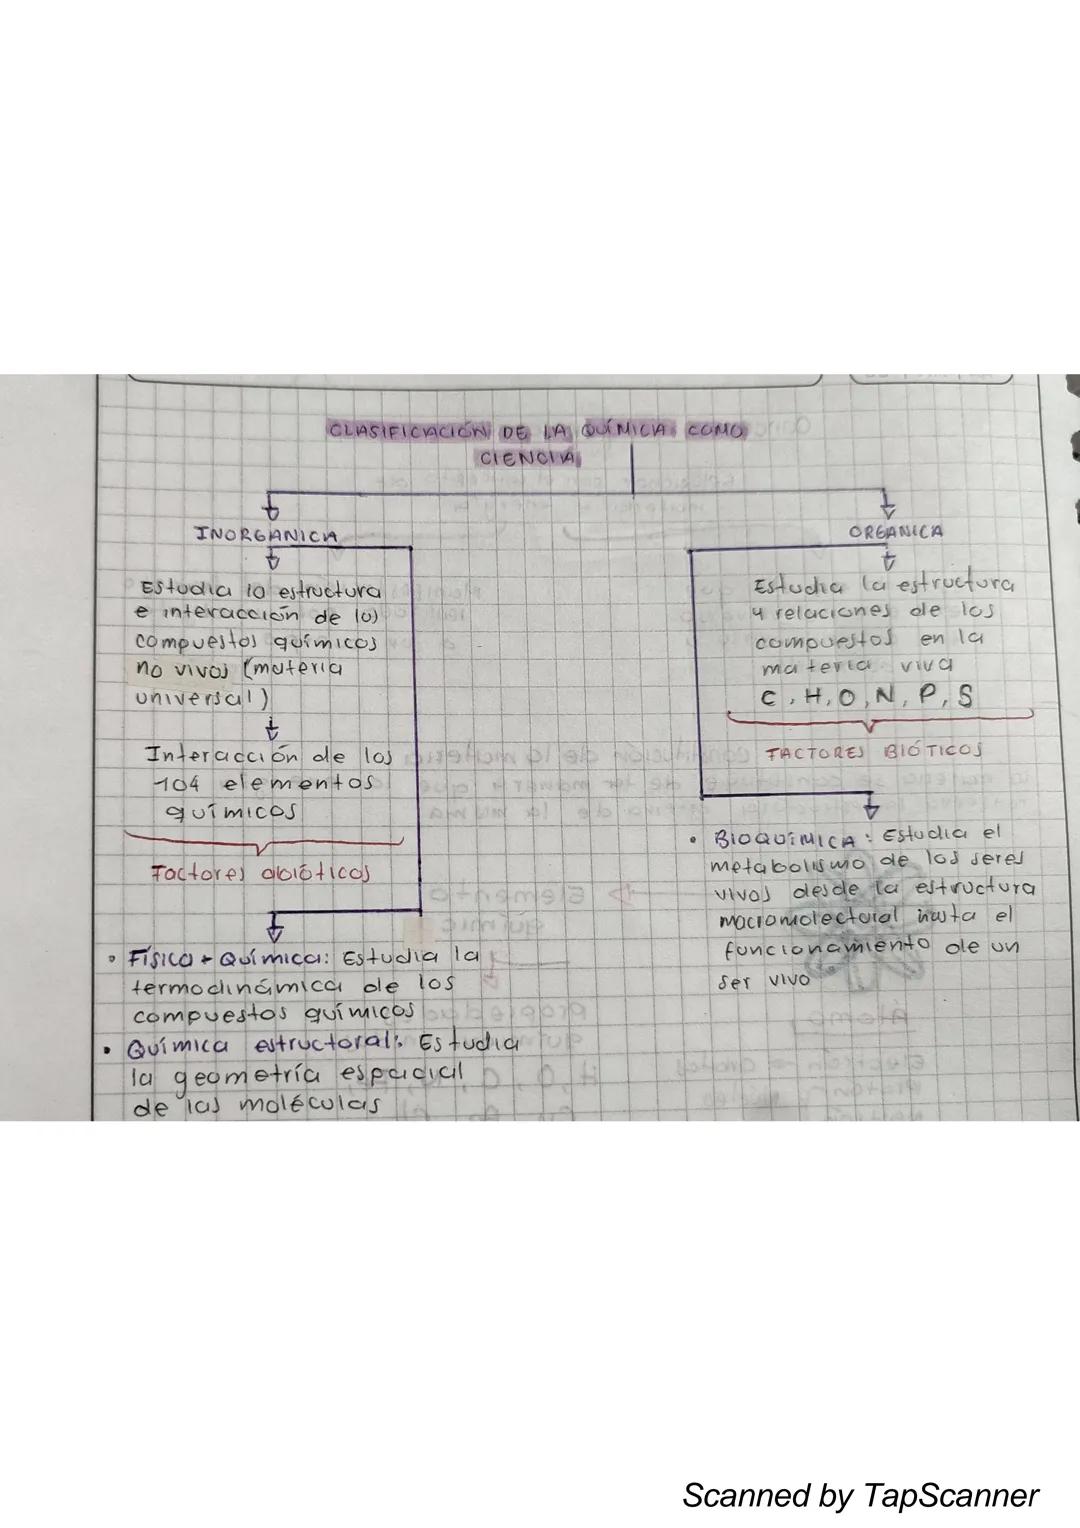 CLASIFICACIÓN DE LA QUÍMICA COMO
CIENCIA
INORGANICA
Estudia la estructura
e interacción de los
compuestos químicos
no vivos (materia
universal)
Interacción de los
104 elementos
químicos
Factores abióticos
• Físico + Química: Estudia la
termodinámica de los
compuestos químicos
• Química estructural: Estudia
la geometría espacial
de las moléculas
ORGANICA
Estudia la estructura
y relaciones de los
compuestos en la
materia viva
C, H, O, N, P, S
FACTORES BIÓTICOS
• BIOQUÍMICA: Estudia el
metabolismo de los seres
vivos desde la estructura
macromolectural hasta el
funcionamiento de un
ser vivo
Scanned by TapScanner